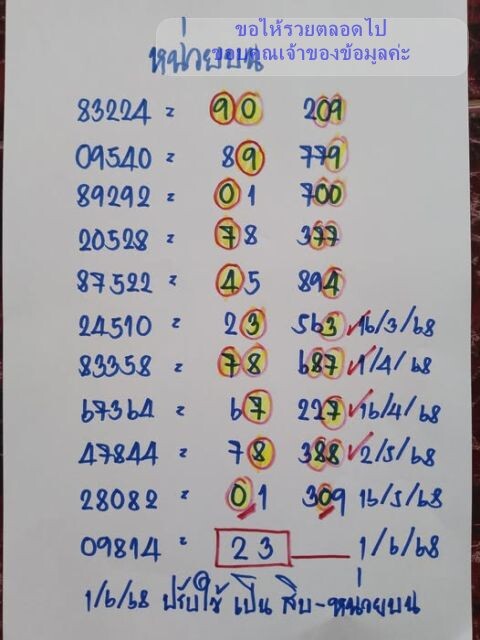 ขอให้รวยตลอดไป
ขอบคุณเจ้าของข้อมูลค่ะ
หน่วยบน
83224 = 90 209
09540 = 89 779
89292 = 01 700
20528 = 78 377
87522 = 45 894
24510 = 23 563 ✓16/3/68
83358 = 78 687 ✓1/4/68
67364 = 67 227 ✓16/4/68
47844 = 78 388 ✓2/5/68
28082 = 01 309 16/5/68
09814 = 23 1/6/68
1/6/68 ปรับใช้ เป็น สิบ-หน่วยบน